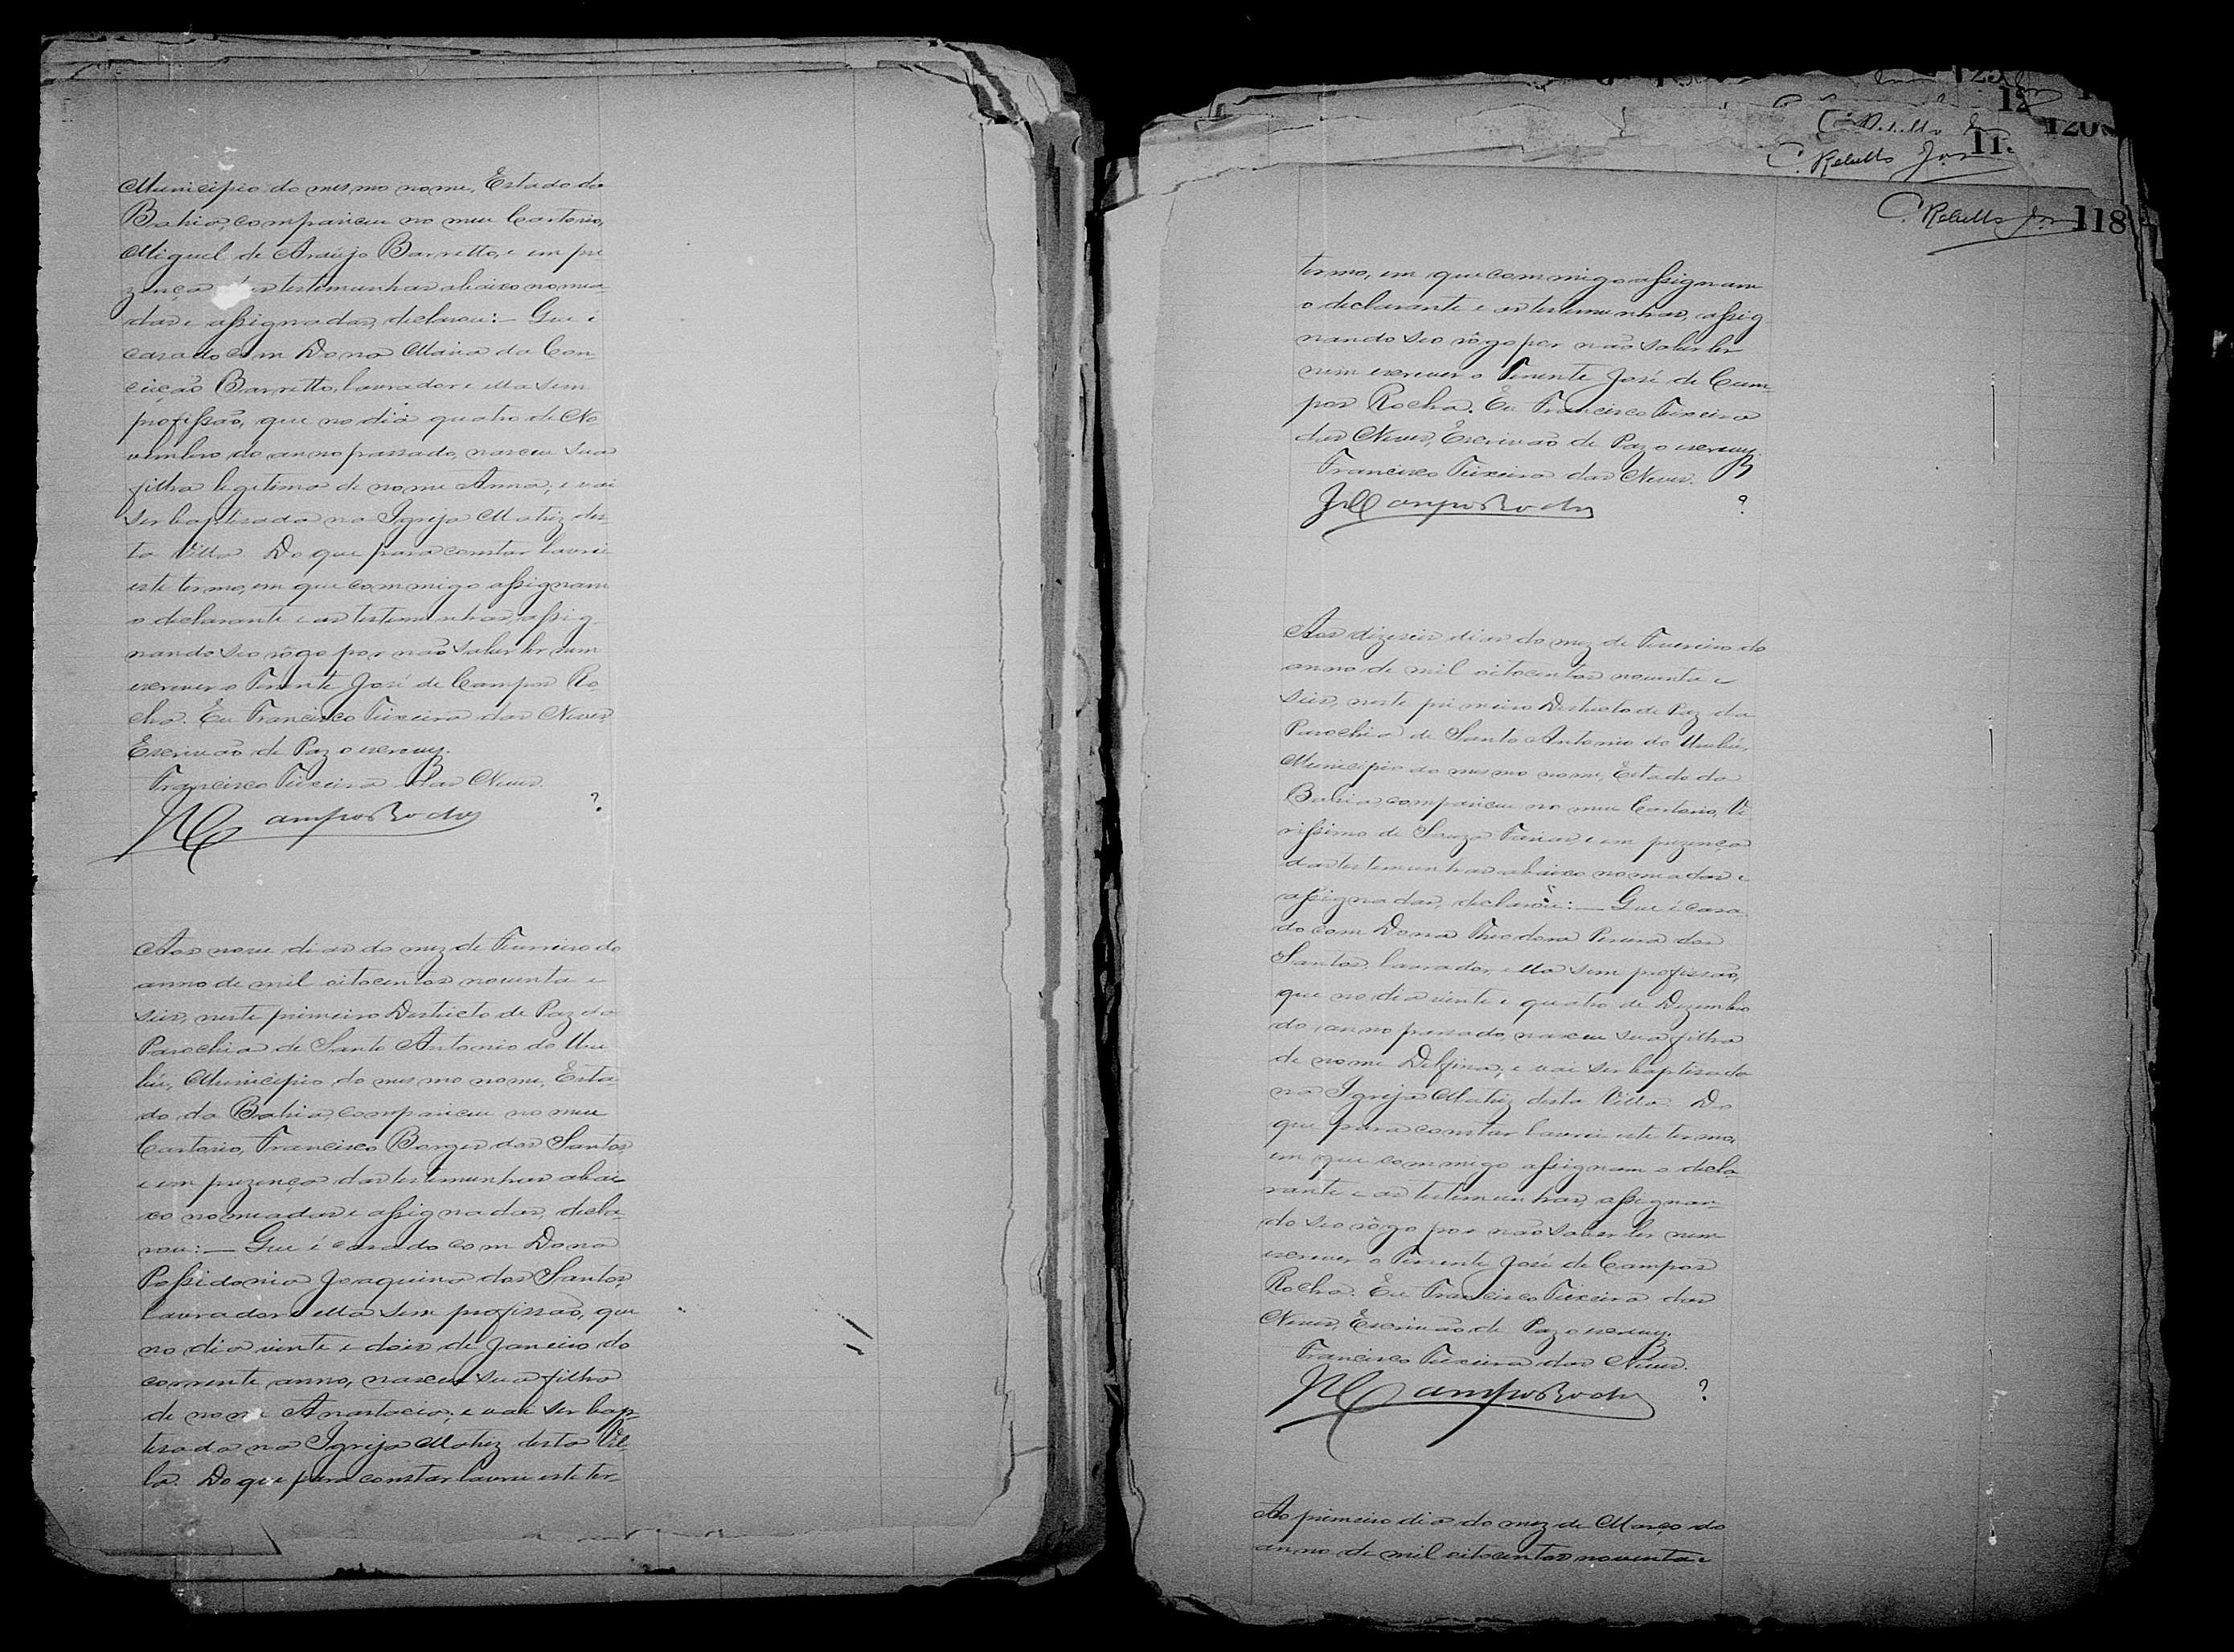 Municipio do mesmo nome, Estado da
Bahia, compareceu no meu Cartorio,
Miguel de Araújo Barretto, e em pre
zença das testemunhas abaixo nomea-
das e assignadas, declarou:- Que é
casado com Dona Maria da Con-
ceição Barretto, lavrador e ella sem
profissão, que no dia quatro de No
vembro do anno passado, nasceu sua
filha legitima de nome Anna; e vai
ser baptisada na Igreja Matriz des-
ta Villa. Do que para constar lavrei
este termo, em que commigo assignam
o declarante e as testemunhas, assig
nando seo rôgo por não saber ler nem
escrever o Tenente José de Campos Ro,
cha. Eu Francisco Teixeira das Neves
Escrivão de Paz o escrevy.
Francisco Teixeira das Neves.
JCamposRocha
?
Aos nove dias do mez de Fevereiro do
anno de mil oitocentos noventa e
seis, neste primeiro Destricto de Paz da
Parochia de Santo Antonio do Uru
bú, Municipio do mesmo nome, Esta
do da Bahia, compareceu no meu
Cartorio, Francisco Borges dos Santos
e em prezença das testemunhas abai-
xo nomeadas e assignadas, decla-
rou:- Que é casado com Dona
Possidonia Joaquina dos Santos,
lavrador e ella sem profissão, que
no dia vinte e dois de Janeiro do
corrente anno, nasceu sua filha
de nome Anastacia; e vai ser bap-
tisada na Igreja Matriz desta Vil-
la. Do que para constar lavrei este ter-
C. Rebello Jor
11
C. Rebello Jor 118
termo, em que commigo assignam
o declarante e as testemunhas, assig
nando seo rôgo por não saber ler
nem escrever o Tenente José de Cam-
pos Rocha. Eu Francisco Teixeira
das Neves, Escrivão de Paz o escrevy.
Francisco Teixeira das Neves.
JCamposRocha
?
Aos dizeseis dias do mez de Fevereiro do
anno de mil oitocentos noventa e
seis, neste primeiro Destricto de Paz da
Parochia de Santo Antonio do Urubú,
Municipio do mesmo nome, Estado da
Bahia, compareceu no meu Cartorio, Ve
rissimo de Souza Farias, e em prezença
das testemunhas abaixo nomeadas e
assignadas, declarou:- Que é casa
do com Dona Theodora Pereira dos
Santos, lavrador, e ella sem profissão,
que no dia vinte e quatro de Dezembro
do anno passado, nasceu sua filha
de nome Delfina; e vai ser baptisada
na Igreja Matriz desta Villa. Do
que para constar lavrei este termo,
em que commigo assignam o decla-
rante e as testemunhas, assignan-
do seo rôgo por não saber ler nem
escrever o Tenente José de Campos
Rocha. Eu Francisco Teixeira das
Neves, Escrivão de Paz o escrevy.
Francisco Teixeira das Neves.
JCamposRocha
?
Ao primeiro dia do mez de Março do
anno de mil oitocentos noventa e